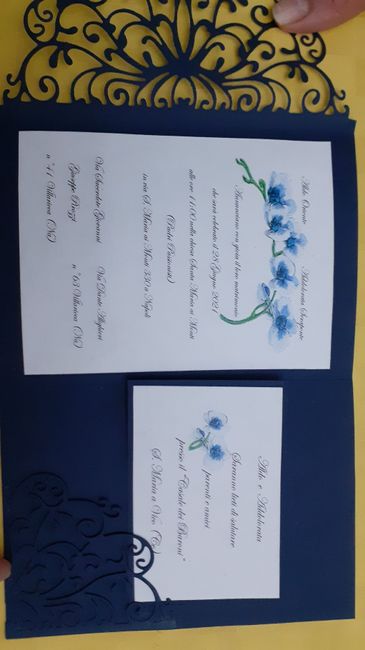 Aldo Oriente Addolorata Serapente
Annunciano con gioia il loro matrimonio
che sarà celebrato il 28 Giugno 2021
alle ore 11:00 nella chiesa Santa Maria ai Monti
(Padri Passionisti)
in via S. Maria ai Monti 330 a Napoli
Via Sacerdote Giovanni Via Dante Alighieri
Giuseppe
n° 41 Villaricca (Na) n° 63 Villaricca (Na)
Aldo e Addolorata
Saranno lieti di salutare
parenti e amici
presso il "Casale dei Baroni"
S. Maria a Vico (Ce)